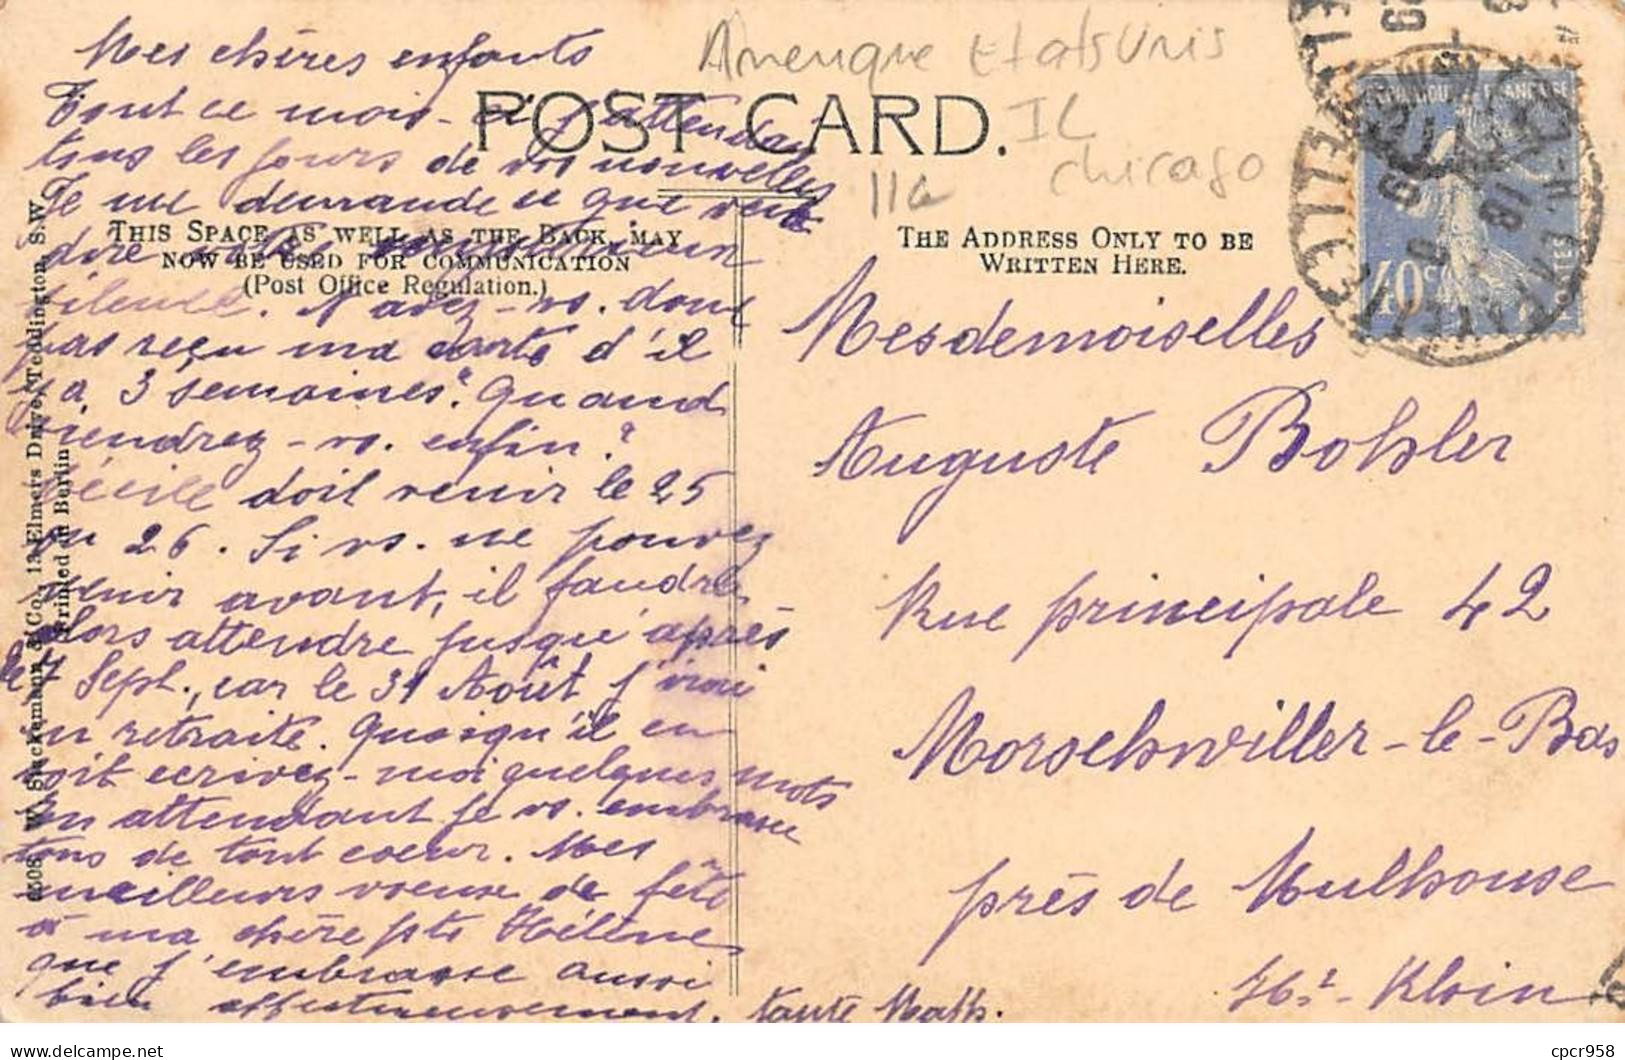 Amerique Etats Unis
IL
Chicago
11e
POST CARD.
THIS SPACE AS WELL AS THE BACK, MAY
NOW BE USED FOR COMMUNICATION
(Post Office Regulation.)
THE ADDRESS ONLY TO BE
WRITTEN HERE.
40c
Mes chères enfants
Tout ce mois-ci j'attendai
tous les jours de vos nouvelles
Je me demande ce que veut
dire votre
silence. N'avez-vs. donc
pas reçu ma carte d'il
y a 3 semaines? Quand
viendrez-vs. enfin?
Cécile doit venir le 25
ou 26. Si vs. ne pouvez
venir avant, il faudra
alors attendre jusqu'après
le 7 Sept., car le 31 Août j'irai
en retraite. Quoiqu'il en
soit ecrivez-moi quelques mots
En attendant je vs. embrasse
tous de tout coeur. Mes
meilleurs voeux de fête
à ma chère pte Hélène
que j'embrasse aussi
bien affectueusement. tante Math.
Mesdemoiselles
Auguste Bohler
Rue principale 42
Morschwiller-le-Bas
près de Mulhouse
Ht-Rhin
6508 W. Stuckemann & Co., 13 Elmers Drive, Teddington, S.W.
Printed in Berlin
cpcr958